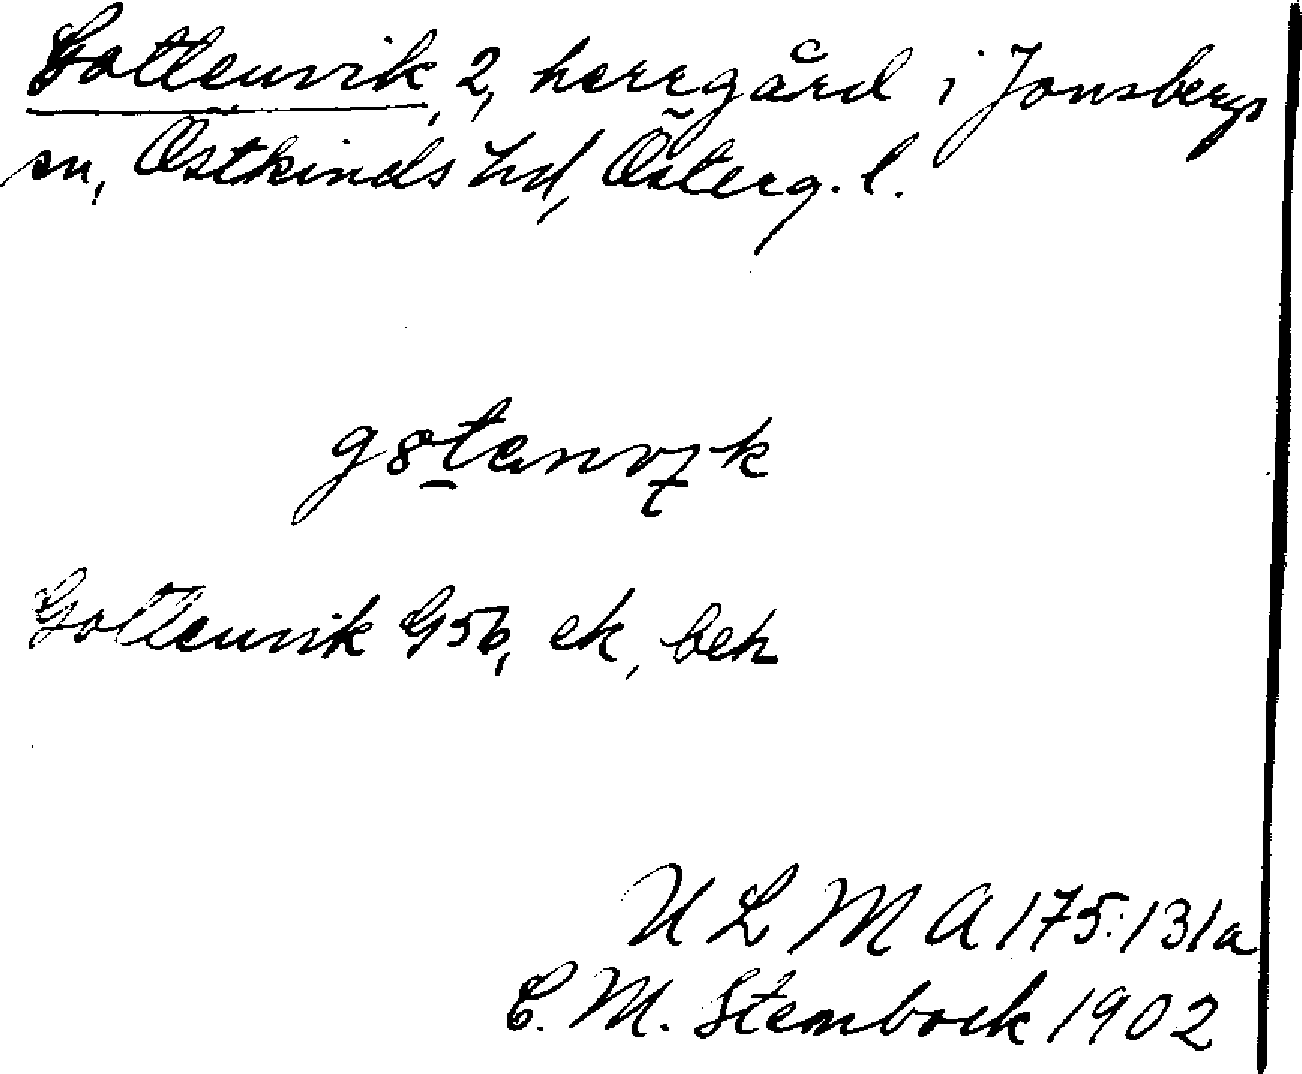 Gottenvik, 2, herrgård i Jonsbergs
sn, Östkinds hd, Österg. l.
g8tenvik
Gottenvik G5b, ek, bek
ULMA 175:131a
C. M. Stenbock 1902